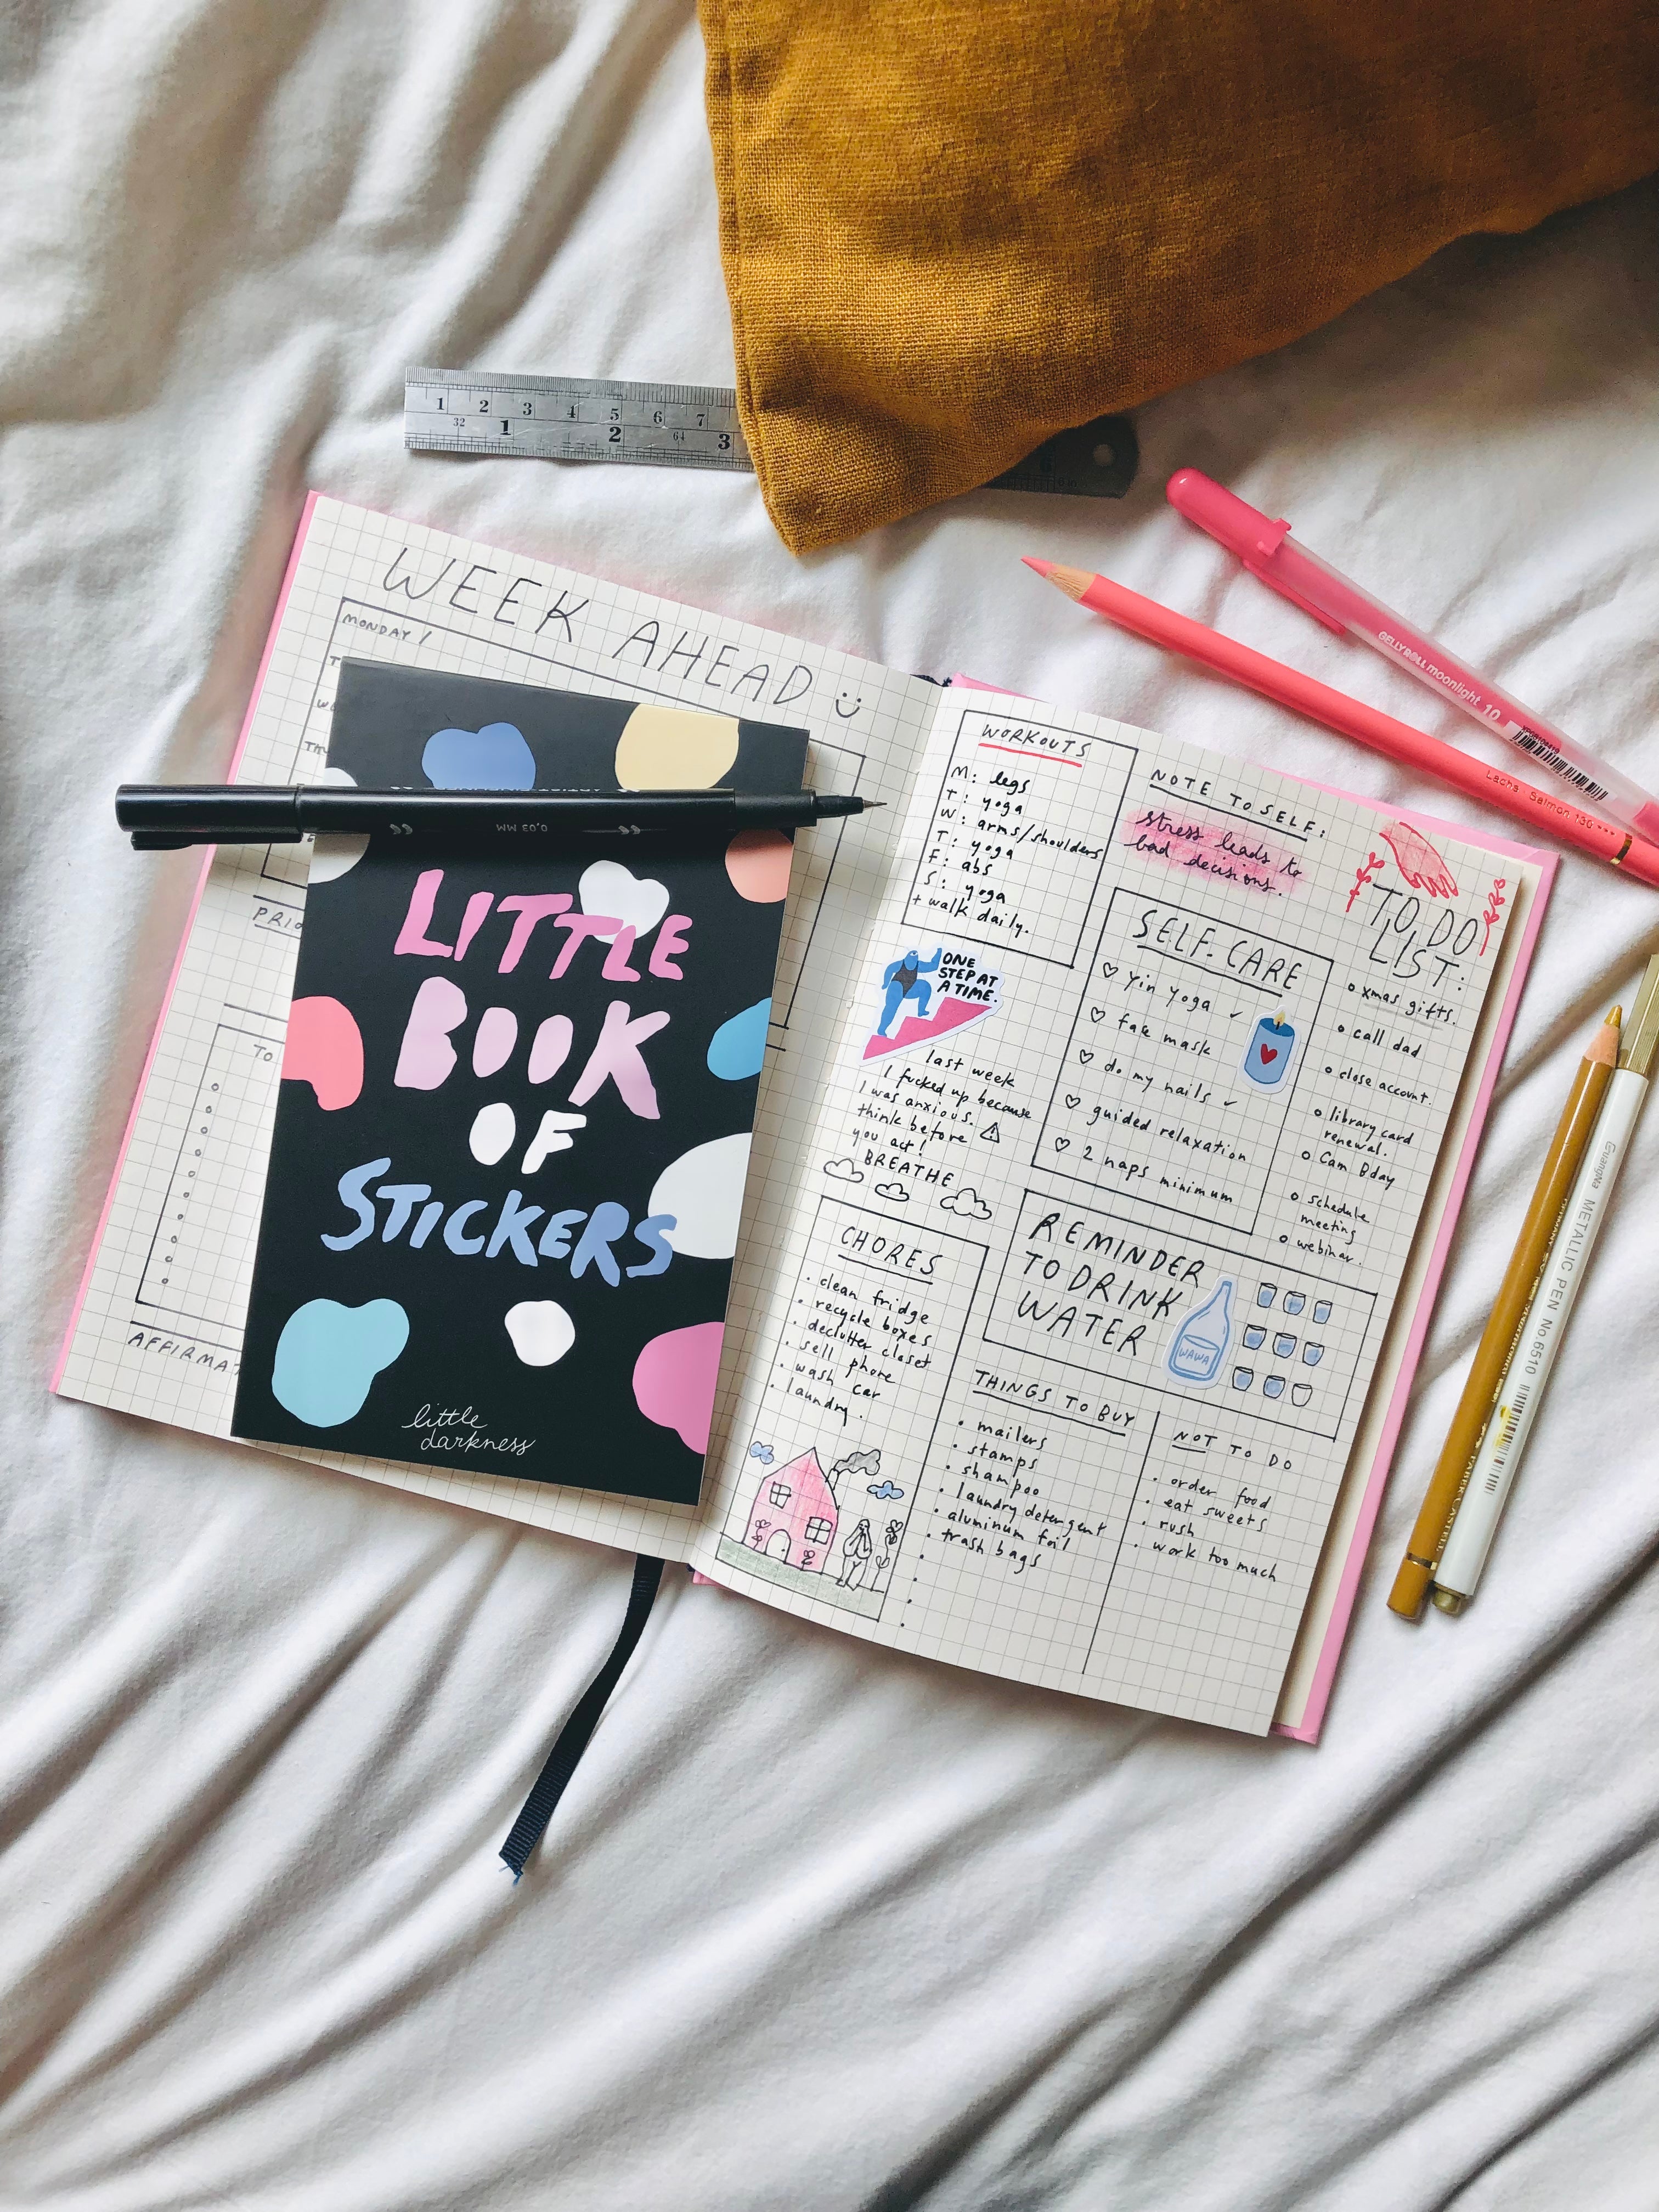 1 2 3 4 5 6 7
32 64
1 2 3
WEEK AHEAD
MONDAY!
PRIO
TO
AFFIRMAT
0,03 MM
LITTLE
BOOK
OF
STICKERS
little
darkness
WORKOUTS
M: legs
T: yoga
W: arms/shoulders
T: yoga
F: abs
S: yoga
+ walk daily.
ONE
STEP AT
A TIME.
last week
I fucked up because
I was anxious.
think before
you act!
BREATHE
CHORES
· clean fridge
· recycle boxes
· declutter closet
· sell phone
· wash car
· laundry.
NOTE TO SELF:
stress leads to
bad decisions.
SELF-CARE
♡ Yin Yoga ✓
♡ face mask
♡ do my nails ✓
♡ guided relaxation
♡ 2 naps minimum
TO DO
LIST:
o xmas gifts.
o call dad
o close account.
o library card
renewal.
o Cam Bday
o schedule
meeting
o webinar.
REMINDER
TO DRINK
WATER
WAWA
THINGS TO BUY
· mailers
· stamps
· shampoo
· laundry detergent
· aluminum foil
· trash bags
NOT TO DO
· order food
· eat sweets
· rush
· work too much
GELLY ROLL moonlight 10
Lachs Salmon 130 ***
GuangNa METALLIC PEN No.6510
FABER-CASTELL